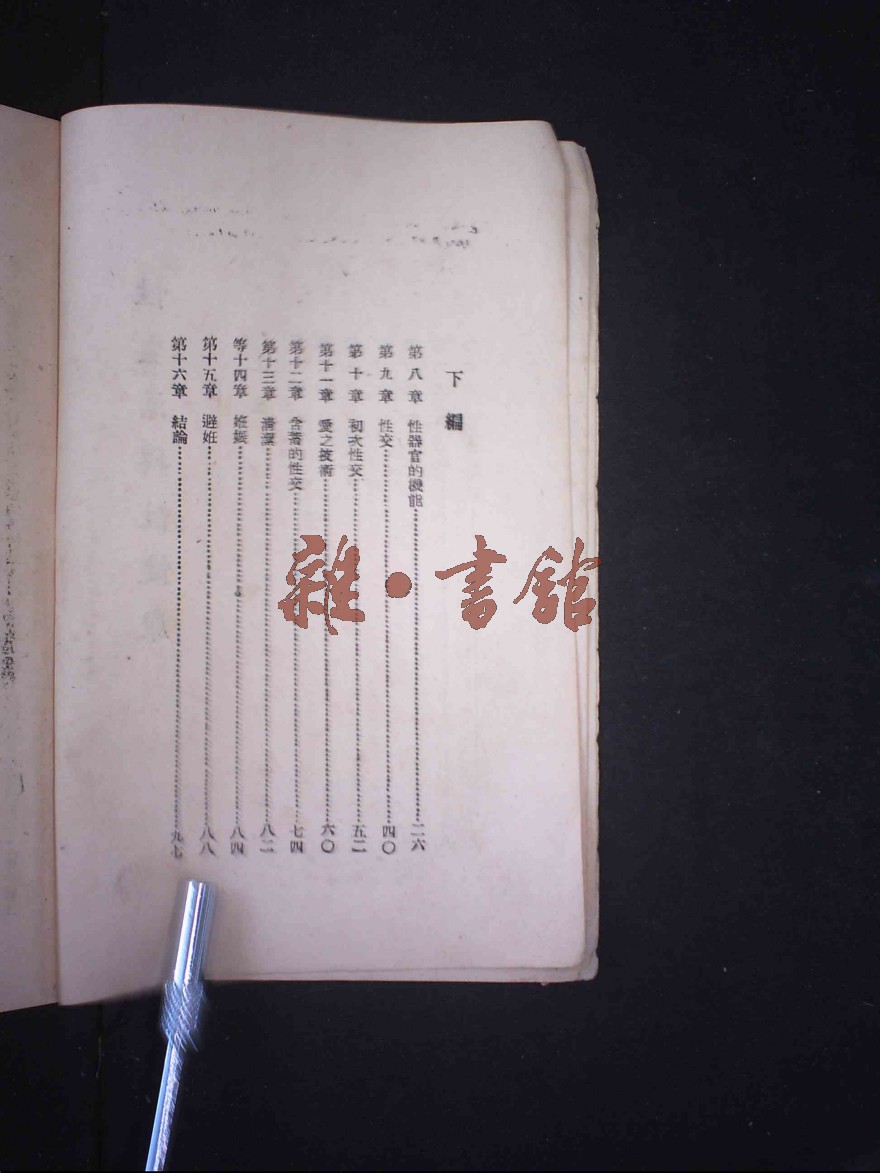 下編
第八章 性器官的機能………二六
第九章 性交………四〇
第十章 初次性交………五二
第十一章 愛之技術………六〇
第十二章 含蓄的性交………七四
第十三章 清潔………八二
等十四章 姙娠………八四
第十五章 避姙………八八
第十六章 結論………九七
雜•書館